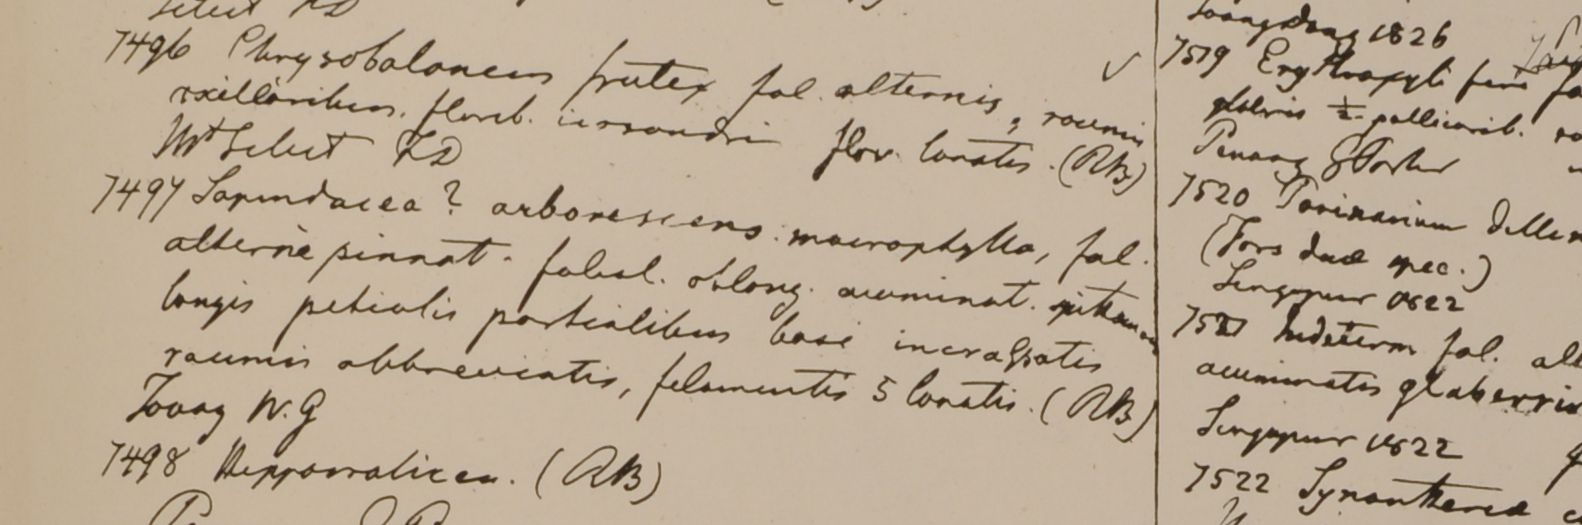 Select
7496 Chrysobalaneus frutex fol. alternis, racemis
axillaribus, florib. flor. lanatis. (RB)
Mt Select
7497 Sapindacea? arborescens macrophylla, fol.
alterne pinnat. foliol. oblong. acuminat.
longis petiolis partialibus basi incrassatis
racemis abbreviatis, filamentis 5 lonatis. (RB)
Tavoy W. G
7498 Hippocraticea. (RB)
1826
7519 Erythroxyli
glabris ½ pollicarib.
Penang G Porter
7520 Parinarium
(Fors duæ spec.)
Singapur 1822
7521 Indeterm fol.
acuminatis glaberri
Singapur 1822
7522 Synantherea